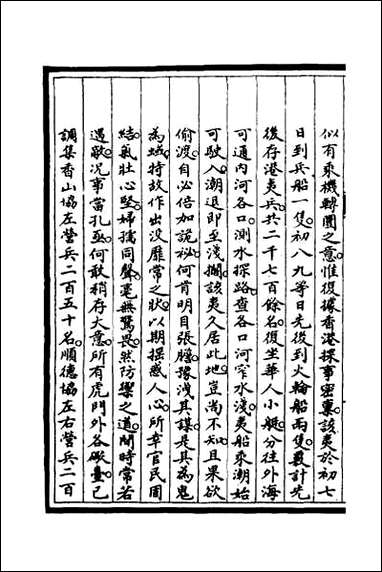 似有乘機轉圜之意惟復據香港探事密稟該夷於初七
日到兵船一隻初八九等日先後到火輪船兩隻裏計先
後存港夷兵共二千七百餘名復坐華人小艇分往外海
可通內河各口測水探路查各口河窄水淺夷船乘潮始
可駛入潮退即至淺擱該夷久居此地豈尚不知且果欲
偷渡自必倍加詭祕何肯明目張膽豫洩其謀是其為鬼
為蜮特故作出沒靡常之狀以期搖惑人心所幸官民固
結氣壯心堅婦孺同聲毫無驚畏然防禦之道閒時常若
遇敵況事當孔亟何敢稍存大意所有虎門外各礮臺已
調集香山協左營兵二百五十名順德協左右營兵二百